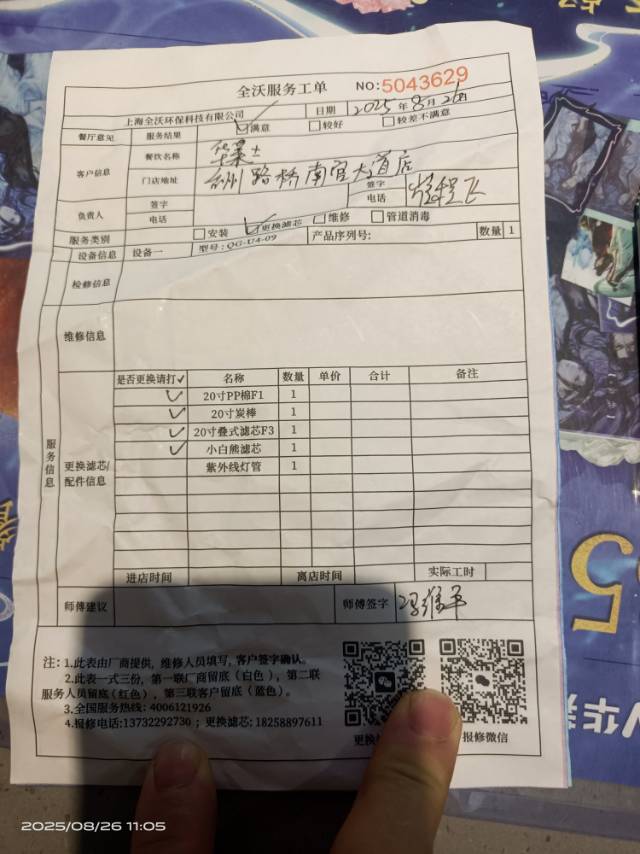 全沃服务工单 NO:5043629
上海全沃环保科技有限公司 日期 2025年8月26日
餐厅意见 服务结果 ☑满意 □较好 □较差不满意
客户信息 餐饮名称 华莱士
门店地址 台州路桥南官大道店
负责人 签字 签字
电话 电话
服务类别 □安装 ☑更换滤芯 □维修 □管道消毒
设备信息 设备一 型号:QG-U4-09 产品序列号: 数量 1
检修信息
维修信息
服务信息
更换滤芯/配件信息
是否更换请打✓ 名称 数量 单价 合计 备注
✓ 20寸PP棉F1 1
✓ 20寸炭棒 1
✓ 20寸叠式滤芯F3 1
✓ 小白熊滤芯 1
紫外线灯管 1
进店时间 离店时间 实际工时
师傅建议 师傅签字
注: 1.此表由厂商提供, 维修人员填写, 客户签字确认。
2.此表一式三份, 第一联厂商留底(白色), 第二联
服务人员留底(红色), 第三联客户留底(蓝色)。
3.全国服务热线: 4006121926
4.报修电话:13732292730 ; 更换滤芯: 18258897611
更换 报修微信
2025/08/26 11:05